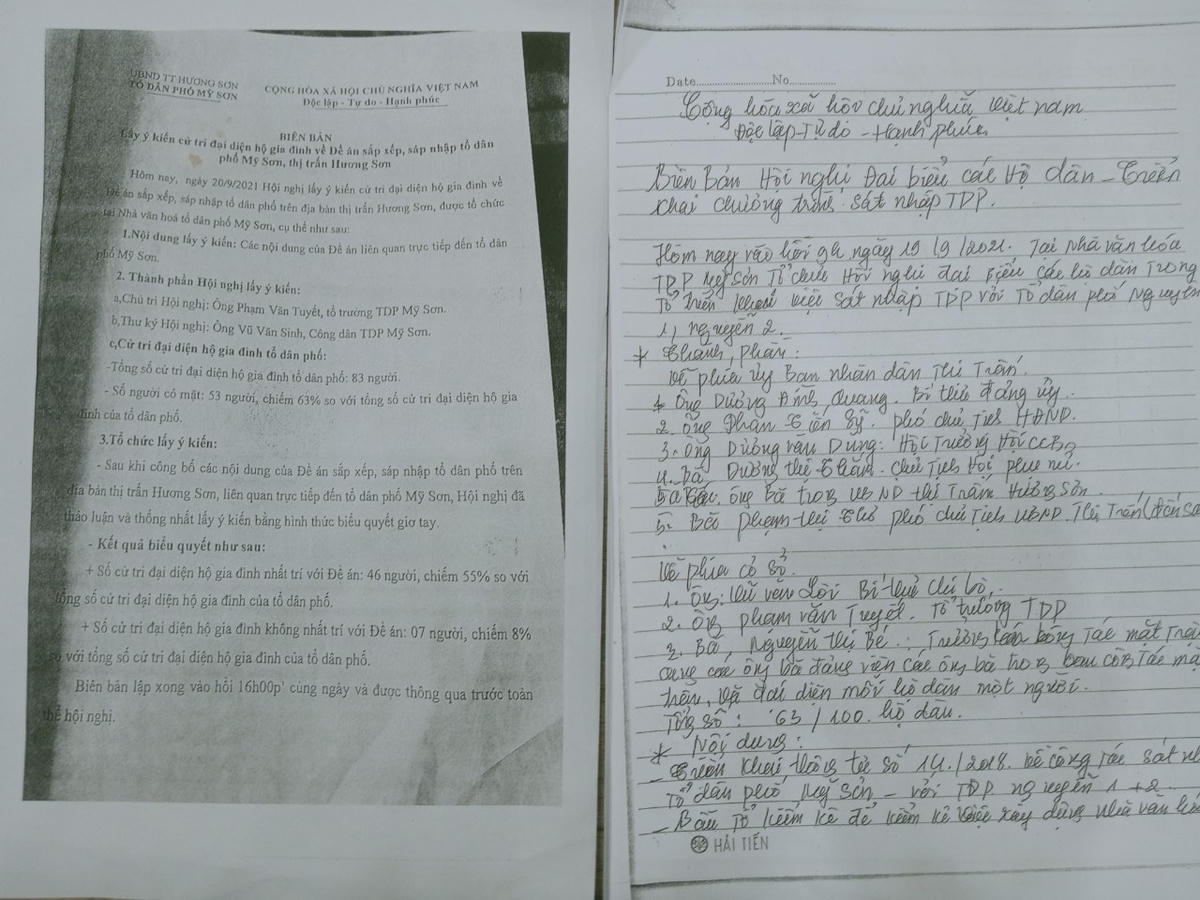 UBND TT HƯƠNG SƠN
TỔ DÂN PHỐ MỸ SƠN
CỘNG HÒA XÃ HỘI CHỦ NGHĨA VIỆT NAM
Độc lập - Tự do - Hạnh phúc
BIÊN BẢN
Lấy ý kiến cử tri đại diện hộ gia đình về Đề án sắp xếp, sáp nhập tổ dân
phố Mỹ Sơn, thị trấn Hương Sơn
Hôm nay, ngày 20/9/2021 Hội nghị lấy ý kiến cử tri đại diện hộ gia đình về
Đề án sắp xếp, sáp nhập tổ dân phố trên địa bàn thị trấn Hương Sơn, được tổ chức
tại Nhà văn hoá tổ dân phố Mỹ Sơn, cụ thể như sau:
1.Nội dung lấy ý kiến: Các nội dung của Đề án liên quan trực tiếp đến tổ dân
phố Mỹ Sơn.
2. Thành phần Hội nghị lấy ý kiến:
a,Chủ trì Hội nghị: Ông Phạm Văn Tuyết, tổ trưởng TDP Mỹ Sơn.
b,Thư ký Hội nghị: Ông Vũ Văn Sinh, Công dân TDP Mỹ Sơn.
c,Cử tri đại diện hộ gia đình tổ dân phố:
-Tổng số cử tri đại diện hộ gia đình tổ dân phố: 83 người.
- Số người có mặt: 53 người, chiếm 63% so với tổng số cử tri đại diện hộ gia
đình của tổ dân phố.
3.Tổ chức lấy ý kiến:
- Sau khi công bố các nội dung của Đề án sắp xếp, sáp nhập tổ dân phố trên
địa bàn thị trấn Hương Sơn, liên quan trực tiếp đến tổ dân phố Mỹ Sơn, Hội nghị đã
thảo luận và thống nhất lấy ý kiến bằng hình thức biểu quyết giơ tay.
- Kết quả biểu quyết như sau:
+ Số cử tri đại diện hộ gia đình nhất trí với Đề án: 46 người, chiếm 55% so với
tổng số cử tri đại diện hộ gia đình của tổ dân phố.
+ Số cử tri đại diện hộ gia đình không nhất trí với Đề án: 07 người, chiếm 8%
so với tổng số cử tri đại diện hộ gia đình của tổ dân phố.
Biên bản lập xong vào hồi 16h00p' cùng ngày và được thông qua trước toàn
thể hội nghị.
Date..................No..................
Cộng hòa xã hôi chủ nghĩa việt nam
Độc lập - Tự do - Hạnh phúc
Biên Bản Hội nghị Đại biểu các Hộ dân - Triển
khai chương trình sát nhập TDP.
Hôm nay vào hồi 9h ngày 19/9/2021. Tại Nhà văn hóa
TDP Mỹ Sơn Tổ chức Hội nghị đại biểu các hộ dân trong
Tổ triển khai việc sát nhập TDP với Tổ dân phố Nguyễn
1, nguyễn 2.
* Thành phần:
Về phía Ủy Ban nhân dân Thị Trấn.
1. Ông Dương Anh Quang. Bí thư đảng ủy.
2. ông Phan Tiến Sỹ. phó chủ Tịch HĐND.
3. Ông Dương văn Dung: Hội Trưởng Hội CCB
4. Bà Dương thị Thắm. chủ Tịch Hội phụ nữ.
ông Bà trong UBND thị Trấn Hương Sơn.
5. Bà phạm thị Thơ phó chủ Tịch UBND. Thị Trấn
Về phía cơ sở.
1. Ông: Vũ văn Lời Bí thư chi bộ,
2. Ông phạm văn Tuyết. Tổ trưởng TDP
3. Bà, Nguyễn thị Bé : Trưởng công Tác mặt Trận
cùng các ông bà đảng viên các ông bà trong ban công Tác mặt
trận, và đại diện mỗi hộ dân một người.
Tổng số: 63/100. hộ dân.
* Nội dung:
- Triển khai thông tư số 14./2018. về công tác sát
Tổ dân phố Mỹ Sơn - với TDP nguyễn 1 + 2
- Bầu Tổ kiểm kê để kiểm kê việc xây dựng nhà văn hóa
HẢI TIẾN